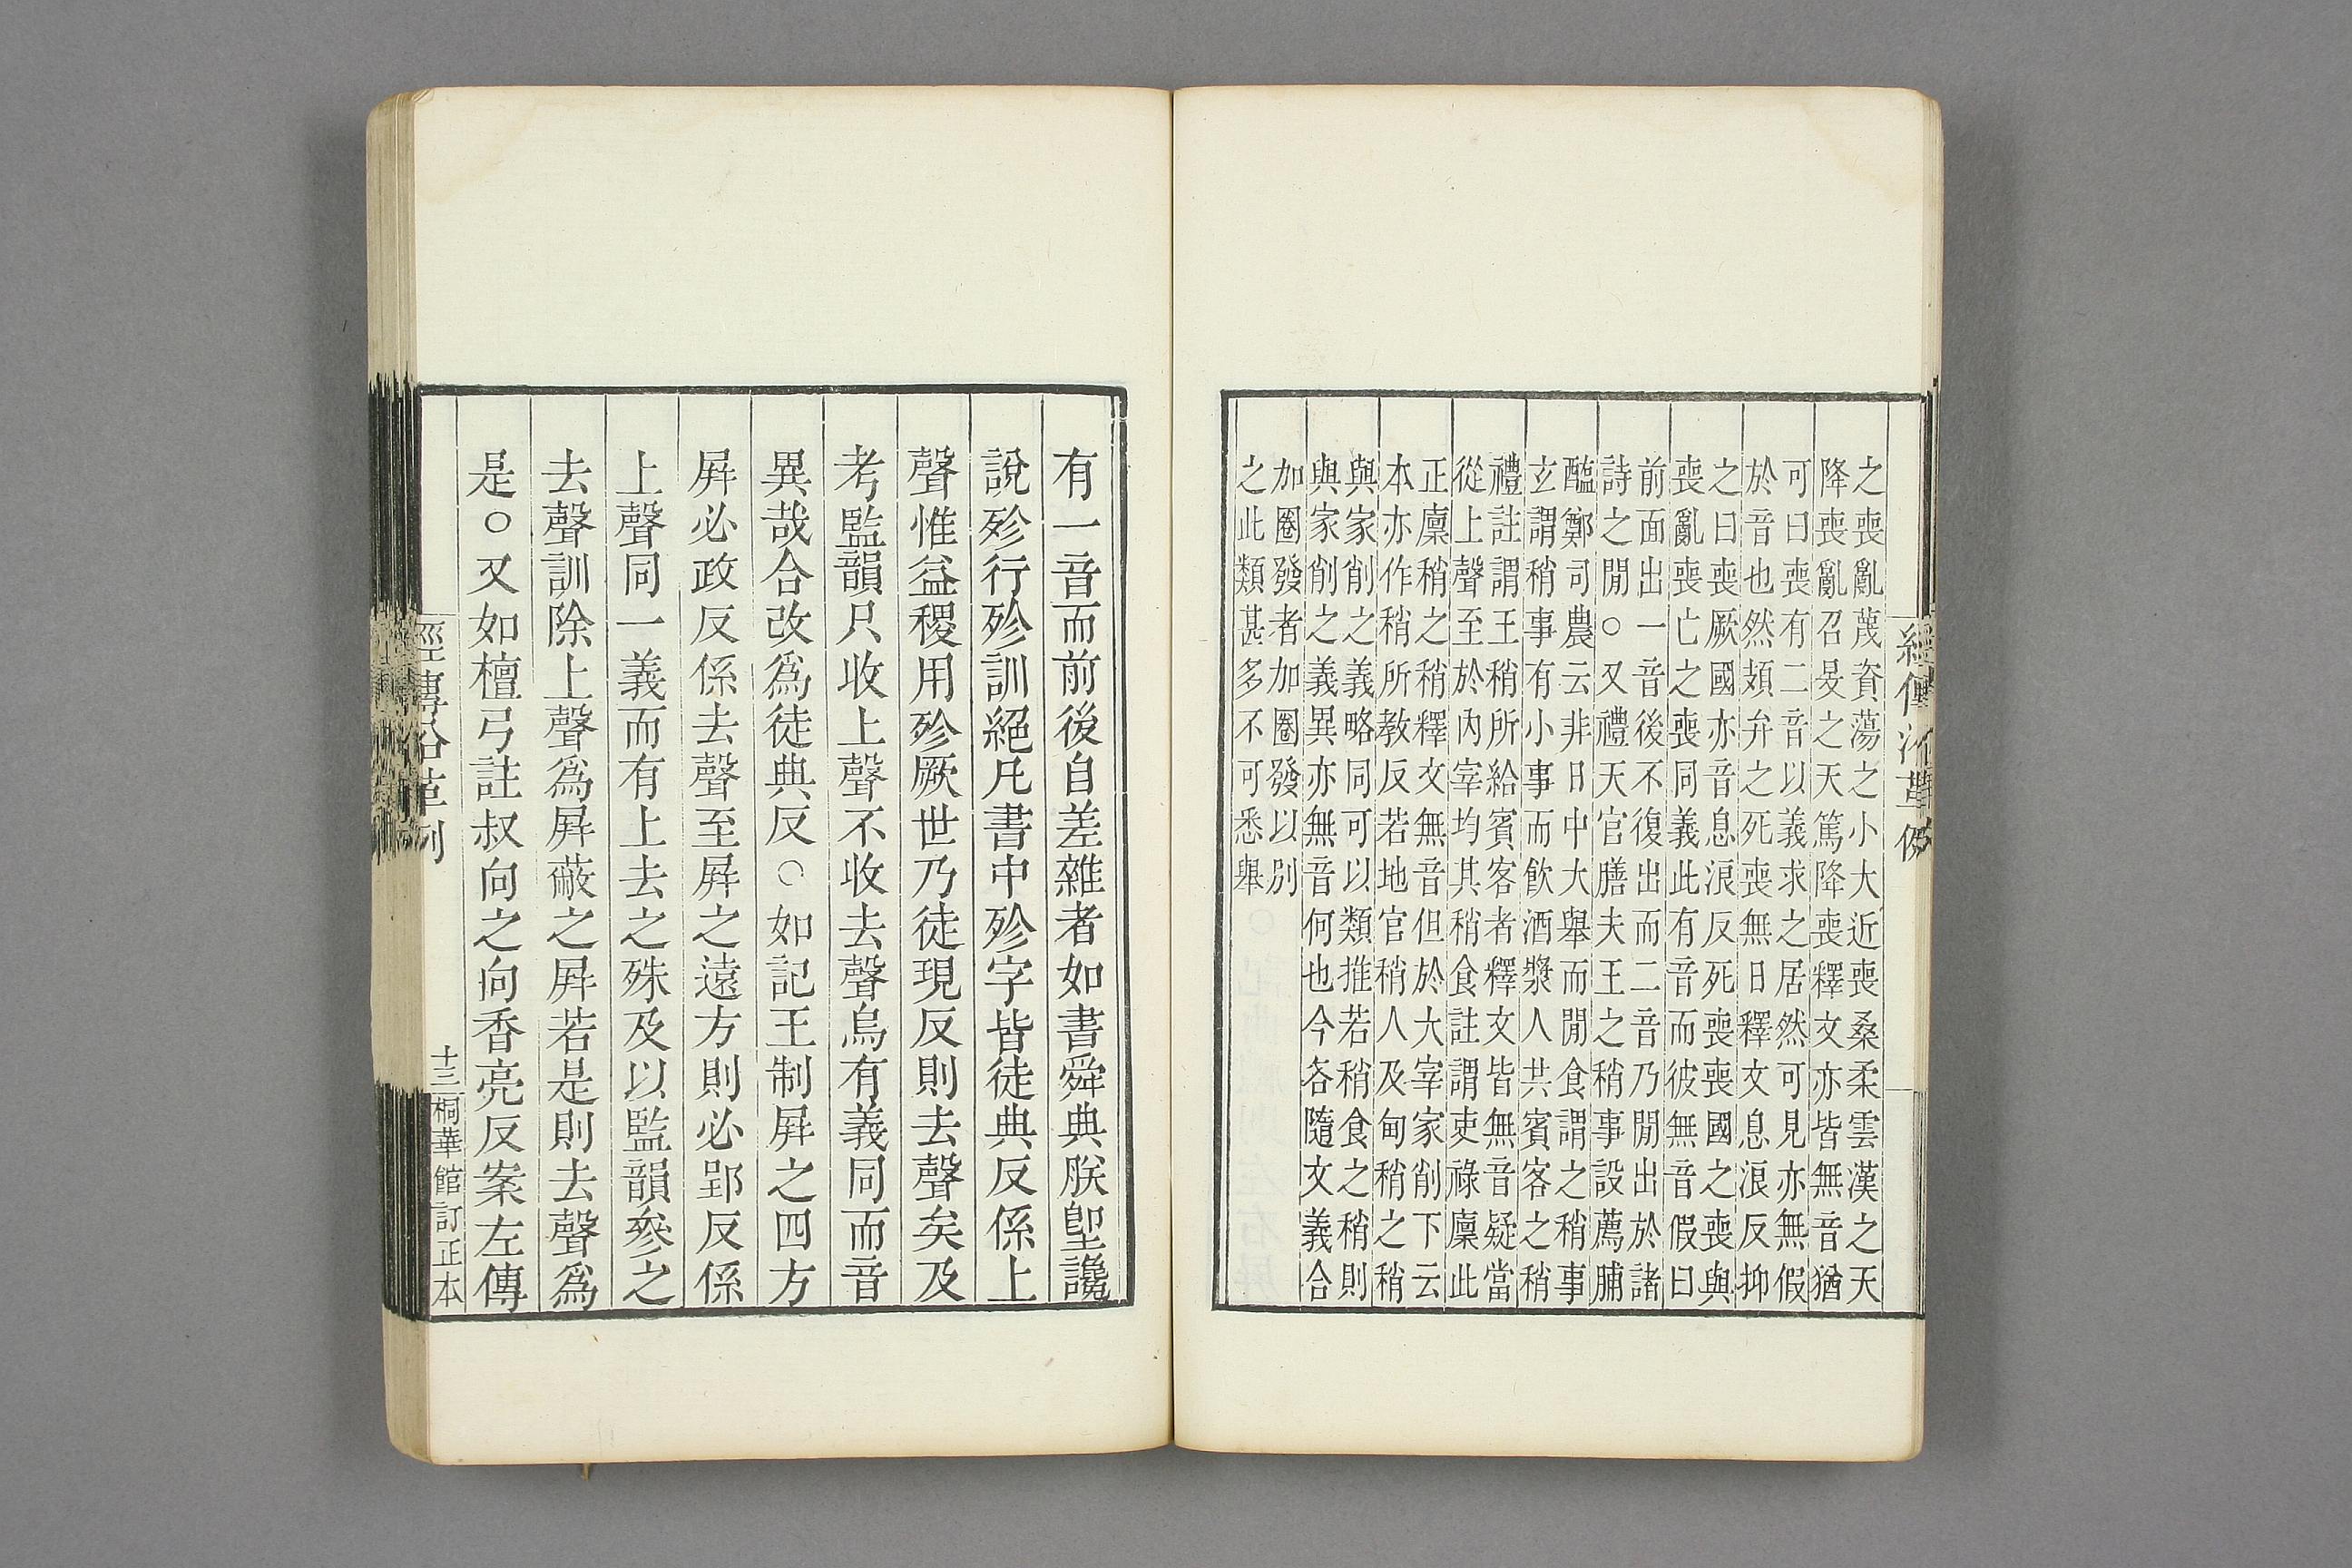 經傳沿革例
之喪亂蔑資蕩之小大近喪桑柔雲漢之天
降喪亂召旻之天篤降喪釋文亦皆無音猶
可曰喪有二音以義求之居然可見亦無假
於音也然頍弁之死喪無日釋文息浪反抑
之曰喪厥國亦音息浪反死喪喪國之喪與
喪亂喪亡之喪同義此有音而彼無音假曰
前面出一音後不復出而二音乃閒出於諸
詩之閒○又禮天官膳夫王之稍事設薦脯
醢鄭司農云非日中大舉而閒食謂之稍事
玄謂稍事有小事而飮酒漿人共賓客之稍
禮註謂王稍所給賓客者釋文皆無音疑當
從上聲至於內宰均其稍食註謂吏祿廩此
正廩稍之稍釋文無音但於大宰家削下云
本亦作稍所敎反若地官稍人及甸稍之稍
與家削之義略同可以類推若稍食之稍則
與家削之義異亦無音何也今各隨文義合
加圈發者加圈發以別
之此類甚多不可悉舉
有一音而前後自差雜者如書舜典朕堲讒
說殄行殄訓絕凡書中殄字皆徒典反係上
聲惟益稷用殄厥世乃徒現反則去聲矣及
考監韻只收上聲不收去聲烏有義同而音
異哉合改爲徒典反○如記王制屛之四方
屛必政反係去聲至屛之遠方則必郢反係
上聲同一義而有上去之殊及以監韻參之
去聲訓除上聲爲屛蔽之屛若是則去聲爲
是○又如檀弓註叔向之向香亮反案左傳
經傳沿革例
十三
桐華館訂正本